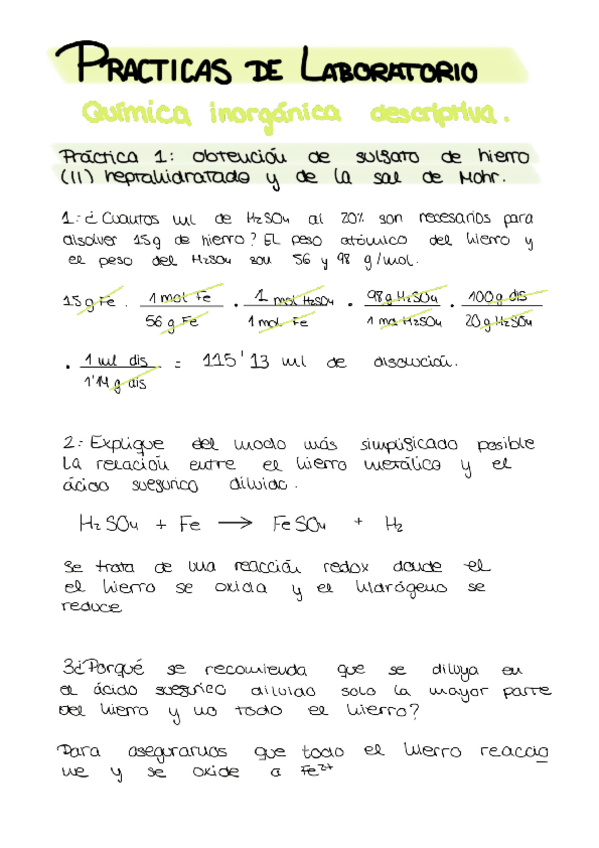 PRACTICAS DE LABORATORIO
Química inorgánica descriptiva.
Práctica 1: obtención de sulfato de hierro
(II) heptahidratado y de la sal de Mohr.
1.- ¿ Cuantos ml de H₂SO₄ al 20% son necesarios para
disolver 15g de hierro? El peso atómico del hierro y
el peso del H₂SO₄ son 56 y 98 g/mol.
15 g Fe · 1 mol Fe / 56 g Fe · 1 mol H₂SO₄ / 1 mol Fe · 98 g H₂SO₄ / 1 mol H₂SO₄ · 100 g dis / 20 g H₂SO₄
· 1 ml dis / 1'14 g dis = 115'13 ml de disolución.
2.- Explique del modo más simplificado posible
la relación entre el hierro metálico y el
ácido sulfúrico diluido.
H₂SO₄ + Fe → FeSO₄ + H₂
Se trata de una reacción redox donde el
el hierro se oxida y el hidrógeno se
reduce
3¿Porqué se recomienda que se diluya en
el ácido sulfúrico diluido solo la mayor parte
del hierro y no todo el hierro?
Para asegurarnos que todo el hierro reaccio
ne y se oxide a Fe²⁺